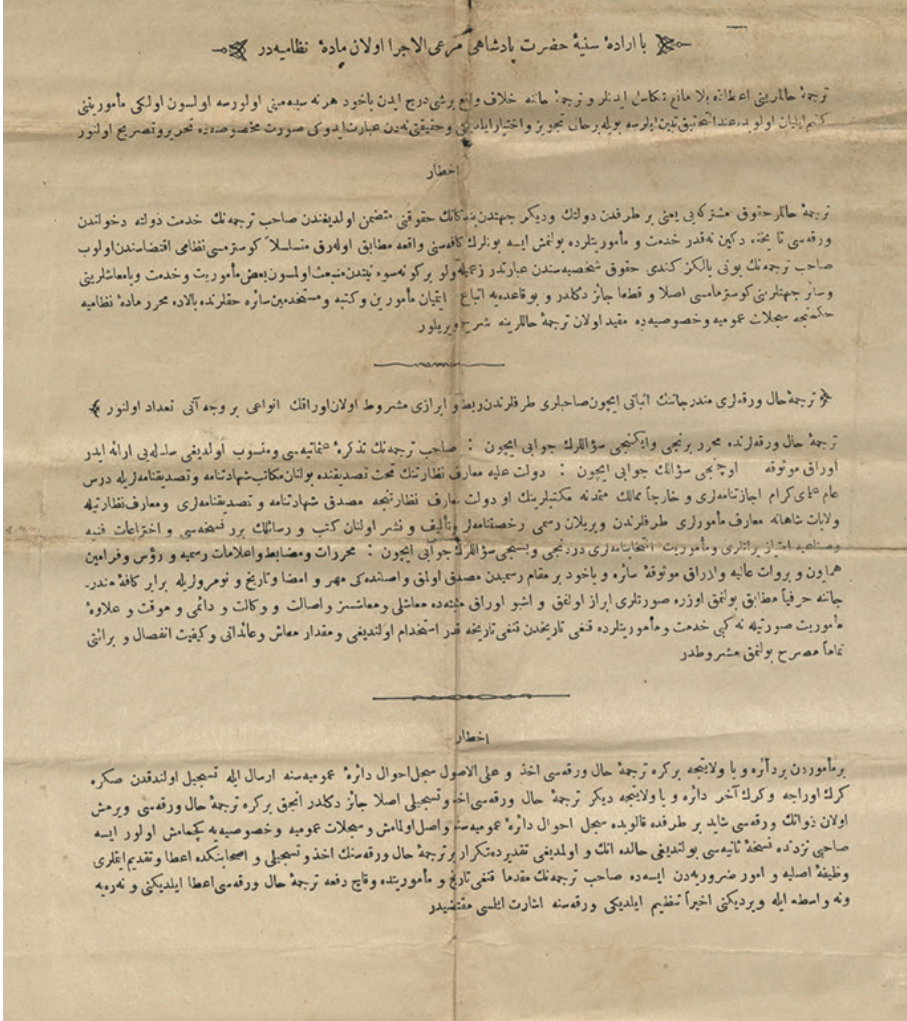 با ارادهٔ سنیهٔ حضرت پادشاهی مرعی الاجرا اولان مادهٔ نظامیه‌در
ترجمهٔ حاللرینی اعطاده بلا مانع تکاسل ایدنلر و ترجمهٔ حالنه خلاف واقع برشی درج ایدن یاخود هر نه سببه مبنی اولورسه اولسون اولکی مأموریتنی
کتم ایلیان اولوبده عند التحقیق تبین ایلرسه بویله برحالی تجویز و اختیار ایلدیکی و حقیقتی نه‌دن عبارت ایدوکی صورت مخصوصه‌ده تحریر و تصریح اولنور
اخطار
ترجمهٔ حاللر حقوق مشترکه‌یی یعنی بر طرفدن دولتك ودیکر جهتدن بنده‌کانك حقوقنی متضمن اولدیغندن صاحب ترجمه‌نك خدمت دولته دخولندن
ورقه‌سی تاریخنه دکین نه‌قدر خدمت و مأموریتلرده بولنمش ایسه بونلرك کافه‌سنی واقعه مطابق اوله‌رق متسلسلاً کوسترمسی نظامی اقتضاسندن اولوب
صاحب ترجمه‌نك بونی یالکز کندی حقوق شخصیه‌سندن عبارتدر زعمیله ولو بر کونه سوء نیتدن منبعث اولمسون بعض مأموریت و خدمت ویا معاشلرینی
وسائر جهتلرینی کوسترمامسی اصلا و قطعا جائز دکلدر و بو قاعده‌یه اتباع ایتمیان مأمورین و کتبه و مستخدمین سائره حقلرنده بالاده محرر مادهٔ نظامیه
حکمنجه سجلات عمومیه و خصوصیه‌ده مقید اولان ترجمهٔ حاللرینه شرح ویریلور
﴿ ترجمهٔ حال ورقه‌لری مندرجاتنك اثباتی ایچون صاحبلری طرفلرندن ربط و ابرازی مشروط اولان اوراقك انواعی بر وجه آتی تعداد اولنور ﴾
ترجمهٔ حال ورقه‌لرنده محرر برنجی وایکنجی سؤاللرك جوابی ایچون : صاحب ترجمه‌نك تذکرهٔ عثمانیه‌سی ومنسوب اولدیغی سلاله‌یی ارائه ایدر
اوراق موثوقه اوچنجی سؤالك جوابی ایچون : دولت علیه معارف نظارتنك تحت تصدیقنده بولنان مکاتب شهادتنامه و تصدیقنامه‌لریله درس
عام علمای کرام اجازتنامه‌لری و خارجاً ممالك متمدنه مکتبلرینك او دولت معارف نظارتنجه مصدق شهادتنامه و تصدیقنامه‌لری ومعارف نظارتیله
ولایات شاهانه معارف مأمورلری طرفلرندن ویریلان رسمی رخصتنامه‌لر وتألیف و نشر اولنان کتب و رسائلك برر نسخه‌سی و اختراعات فنیه
وصناعیه امتیاز براتلری ومأموریت انتخابنامه‌لری دردنجی وبشنجی سؤاللرك جوابی ایچون : محررات ومضابط واعلامات رسمیه و رؤس وفرامین
همایون و بروات عالیه و اوراق موثوقهٔ سائره و یاخود بر مقام رسمیدن مصدق اولمق واصلنده‌کی مهر و امضا وتاریخ و نومرولریله برابر کافهٔ مندر-
جاتنه حرفیاً مطابق بولنمق اوزره صورتلری ابراز اولنمق و اشبو اوراق مثبته‌ده معاشلی ومعاشسز و اصالت و وکالت و دائمی و موقت و علاوهٔ
مأموریت صورتیله نه کبی خدمت و مأموریتلرده قنغی تاریخدن قنغی تاریخه قدر استخدام اولندیغی و مقدار معاش وعائداتی و کیفیت انفصال و برائتی
تماماً مصرح بولنمق مشروطدر
اخطار
برمأموردن بر دائره و یا ولایتجه برکره ترجمهٔ حال ورقه‌سی اخذ و علی الاصول سجل احوال دائرهٔ عمومیه‌سنه ارسال ایله تسجیل اولندقدن صکره
کرك اوراجه وکرك آخر دائره و یا ولایتجه دیکر ترجمهٔ حال ورقه‌سی اخذ وتسجیلی اصلا جائز دکلدر انجق برکره ترجمهٔ حال ورقه‌سی ویرمش
اولان ذواتك ورقه‌سی شاید بر طرفده قالوبده سجل احوال دائرهٔ عمومیه‌سنه واصل اولمامش وسجلات عمومیه وخصوصیه‌یه کچمامش اولور ایسه
صاحبی نزدنده نسخهٔ ثانیه‌سی بولندیغی حالده انك و اولمدیغی تقدیرده تکرار بر ترجمهٔ حال ورقه‌سنك اخذ وتسجیلی و اصحابنکده اعطا وتقدیم ایتملری
وظیفهٔ اصلیه و امور ضروریه‌دن ایسه‌ده صاحب ترجمه‌نك مقدما قنغی تاریخ و مأموریتده وقاچ دفعه ترجمهٔ حال ورقه‌سی اعطا ایلدیکنی و نه‌ریه
ونه واسطه ایله ویردیکنی اخیراً تنظیم ایلدیکی ورقه‌سنه اشارت ایلمسی مقتضیدر